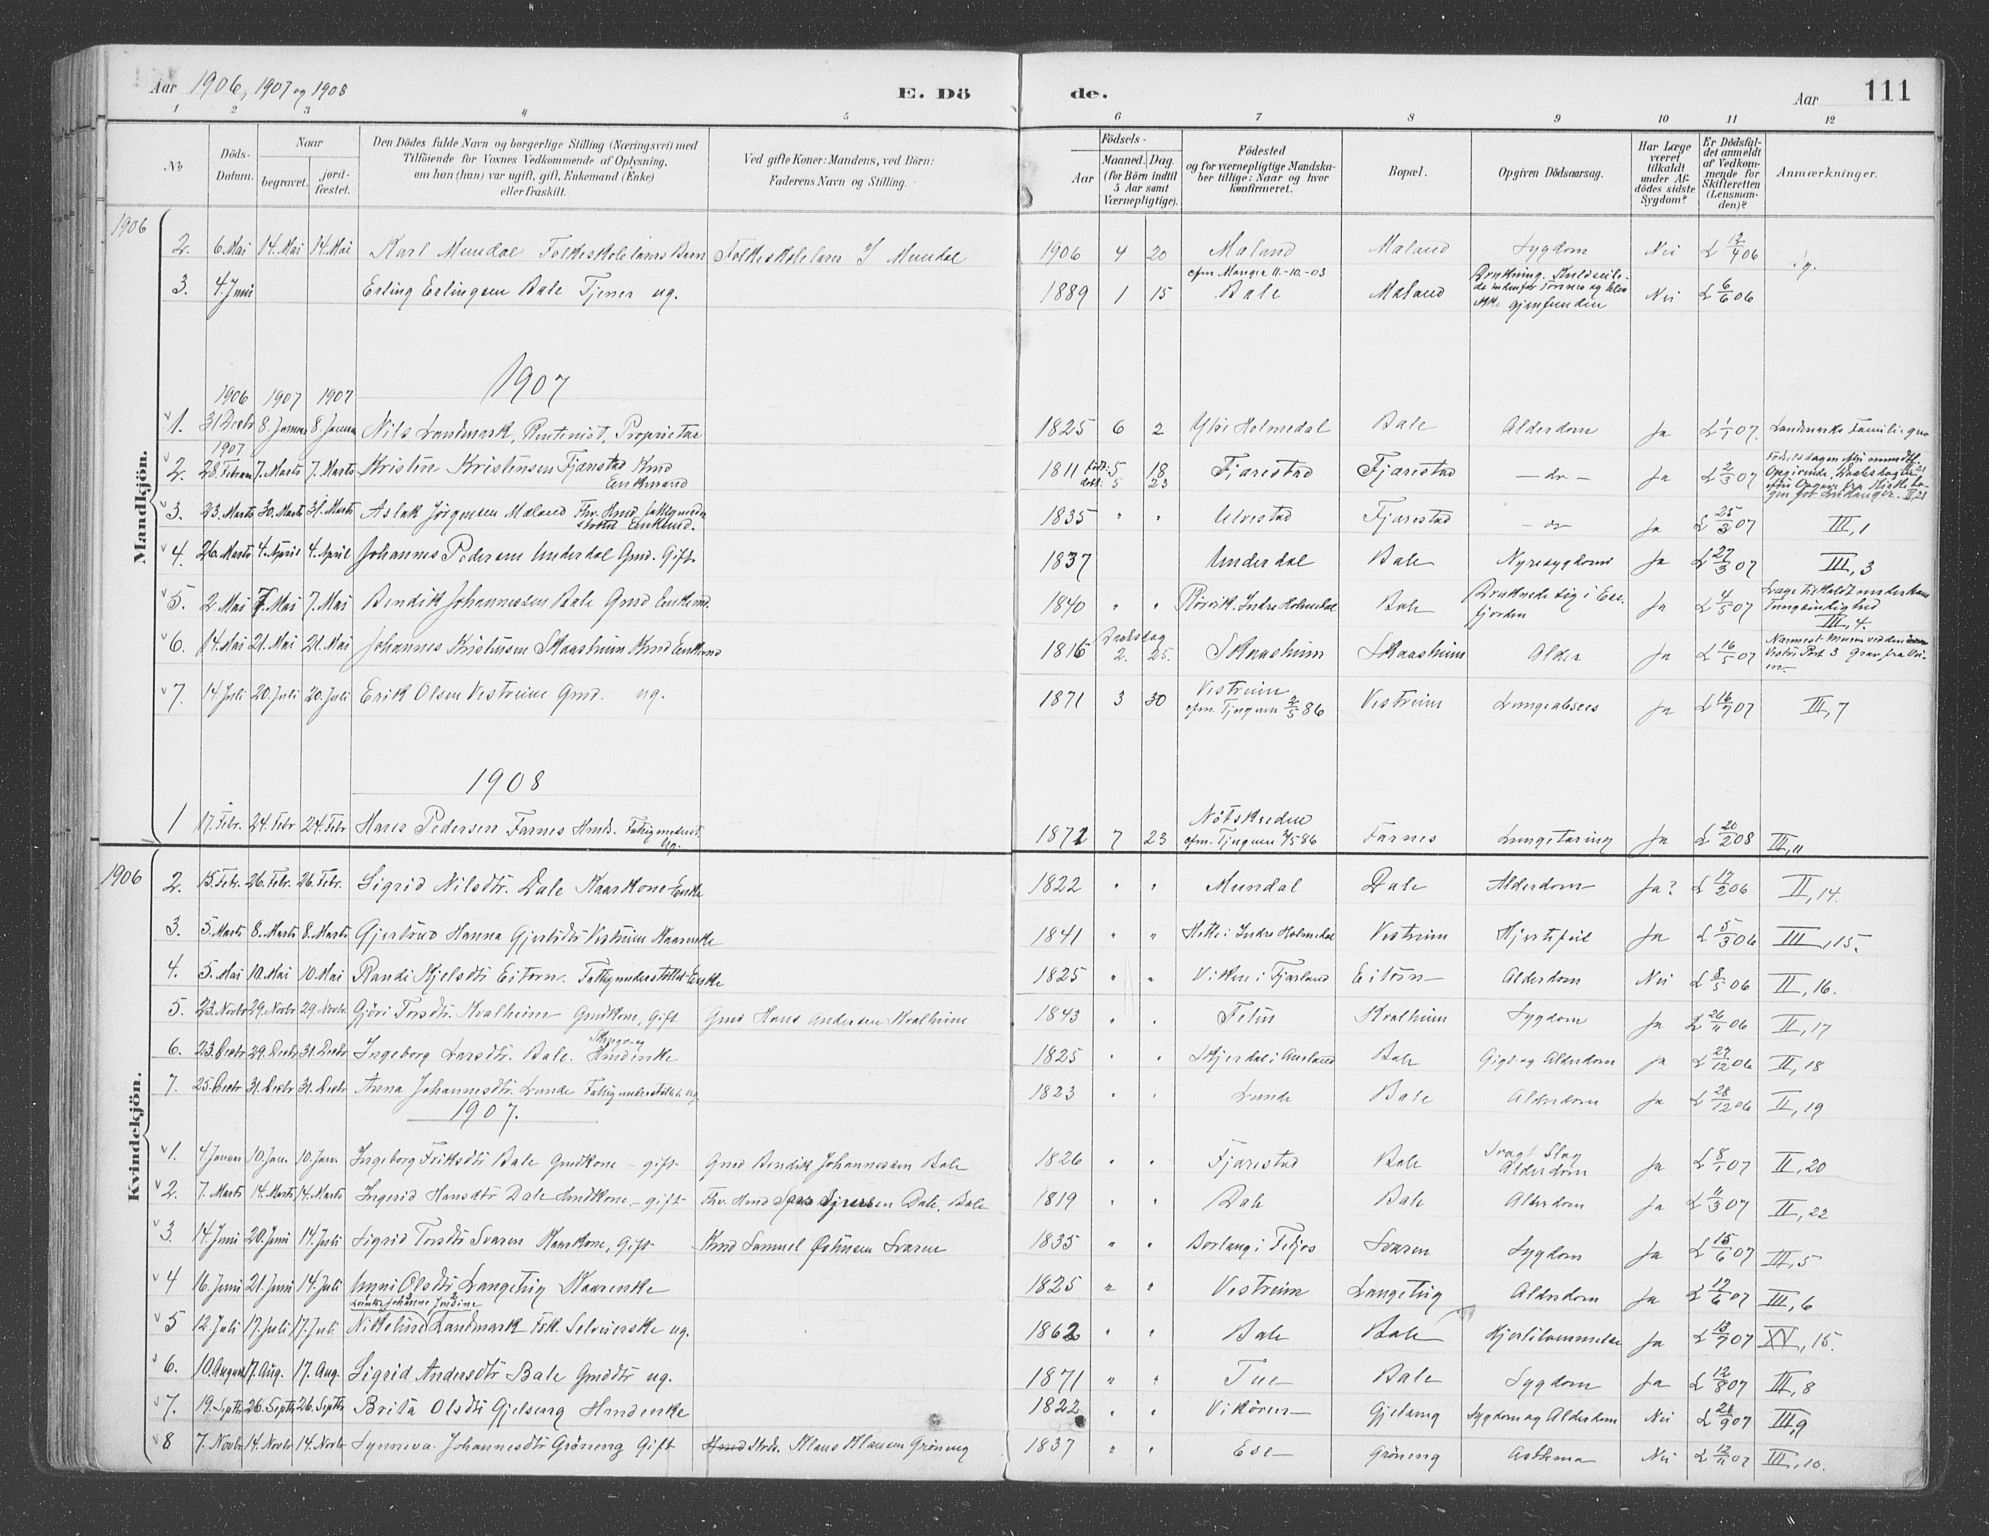 Aar 1906, 1907 og 1908 E. Dö de. Aar 111
1 2 3 4 5 6 7 8 9 10 11 12
No
Döds-Datum.
Naar
begravet.
jord-fæstet.
Den Dödes fulde Navn og borgerlige Stilling (Næringsvei) med
Tilföiende for Voxnes Vedkommende af Oplysning,
om han (hun) var ugift, gift, Enkemand (Enke)
eller fraskilt.
Ved gifte Koner: Mandens, ved Börn:
Faderens Navn og Stilling.
Födsels-
Aar
Maaned. Dag.
(for Börn indtil
5 Aar samt
Værnepligtige).
Födested
og for værnepligtige Mandska-
ber tillige: Naar og hvor
konfirmeret.
Bopæl.
Opgiven Dödsaarsag.
Har Læge
været
tilkaldt
under Af-
dödes sidste
Sygdom?
Er Dödsfal-
det anmeldt
af Vedkom-
mende for
Skifteretten
(Lensman-
den)?
Anmærkninger.
Mandkjön.
1906
2. 6. Mai 14. Mai 14. Mai Karl Mundal Folkeskolelærers Barn Folkeskolelærer Mundal 1906 4 20 Maland Maland Sygdom Nei
3. 4. Juni Erling Erlingsen Bale Tjener ug. 1889 1 15 Bale Maland Nei L 6/6 06
1907
1906 1907 1907
1. 31 Decbr 8. Januar 8. Januar Nils Landmark, Rentenist, Proprietær 1825 6 2 Ytre Holmedal Bale Alderdom Ja L 1/1 07.
1907
2. 28. Februar 7. Marts 7. Marts Kristen Kristensen Fjærestad Kmd Enkemand 1811 5 18 Fjærestad Fjærestad - do - Ja L 2/3 07
3. 23. Marts 30. Marts 31. Marts Aslak Jörgensen Mæland Enkemd. 1835 " " Ulvestad Fjærestad - do Ja L 25/3 07 III, 1
4. 26. Marts 4. April 4. April Johannes Pedersen Underdal Gmd. Gift 1837 Underdal Bale Nyresygdom Ja L 27/3 07 III, 3
5. 2. Mai 7. Mai 7. Mai Bendik Johannessen Bale Gmd Enkemd. 1840 " " Indre Holmedal Bale Druknede sig i Ese-fjorden Ja L 4/5 07 III, 4.
6. 14. Mai 21. Mai 21. Mai Johannes Kristensen Skaasheim Kmd Enkemd 1816 Daabsdag 2. 25. Skaasheim Skaasheim Alder Ja L 16/5 07
7. 14 Juli 20. Juli 20. Juli Erik Olsen Vestreim Gmd. ug. 1871 3 30 Vestreim cfm. Tjugum 2/5 86 Vestreim Lungeabsces Ja L 16/7 07 III, 7
1908
1 17. Febr. 24. Febr 24. Febr Hans Pedersen Farnes Hmd. Fattigunderst. Ug. 1871 7 23 Nötskreden cfm. Tjugum 2/5 86 Farnes Lungetæring Ja L 20/2 08 III, 11
Kvindekjön.
1906
2. 15. Febr. 26. Febr. 26. Febr. Sigrid Nilsdtr. Dale Kaarkone Enke 1822 " " Mundal Dale Alderdom Ja? L 17/2 06 II, 14.
3. 5. Marts 8. Marts 8. Marts Gjertrud Hanna Gjertsdtr Vestreim Kaarenke 1841 " " Indre Holmedal Vestreim Hjertefeil Ja L 5/3 06 III, 15.
4. 5. Mai 10. Mai 10. Mai Randi Kjelsdtr Eitorn. Fattigunderstöttet Enke 1825 " " Vikens i Fjærland Eitorn Alderdom Nei L 8/5 06 II, 16.
5. 23. Novbr 29. Novbr 29 Novbr Gjöri Torsdtr. Kvalheim Gmdkone, Gift Gmd Hans Andersen Kvalheim 1843 " Feius Kvalheim Sygdom Ja L 26/11 06 II, 17
6. 23. Decbr 29. Decbr 31. Decbr Ingeborg Larsdtr. Bale. Hmdenke 1825 " " Skjerdal i Aurland Bale Gigt og Alderdom Ja L 27/12 06 II, 18
7. 25. Decbr 31. Decbr 31. Decbr Anna Johannesdtr. Lunde Fattigunderstöttet ug. 1823 " " Lunde Bale Alderdom Ja L 28/12 06 II, 19
1907.
1. 4. Januar 10. Jan. 10. Jan. Ingeborg Eriksdtr Bale Gmdkone - gift Gmd Bendik Johannessen Bale 1826 " " Fjærestad Bale Alderdom Ja L 8/1 07 II, 20
2. 7. Marts 14. Marts 14. Marts Ingerid Hansdtr Dale Hmdkone - gift Fhv. Hmd Dale, Bale 1819 " " Dale Bale Alderdom Ja L 11/3 07 II, 22
3. 14. Juni 20. Juni 14. Juli Sigrid Torsdtr Svaren Kaarkone, Gift Kmd Samuel Svaren 1835 " " Svaren Sygdom Ja L 15/6 07 III, 5
4 16. Juni 21. Juni 14. Juli Unni Olsdtr Langeteig Kaarenke 1825 " " Vestreim Langeteig Alderdom Ja L 17/6 07 III, 6
5 12 Juli 17. Juli 17. Juli Landmark Frk. ug. 1862 " " Bale Bale Hjertelammelse Ja L 13/7 07 XV, 15.
6. 10. August 17. Aug. 17. Aug. Sigrid Andersdtr Bale Gmdtr ug. 1871 " " Tue Bale Sygdom Ja L 12/8 07 III, 8
7. 19. Septbr 26. Septbr 26. Septbr Brita Olsdtr Gjelseng Hmdenke 1822 " " Vikören Gjelseng Sygdom og Alderdom Nei L 21/9 07 III, 9
8 7. Novbr 14. Novbr 14. Novbr Synneva Johannesdtr Gröneng Gift Klaus Klausen Gröneng 1837 " " Ese Gröneng Asthma Nei L 12/11 07 III, 10.